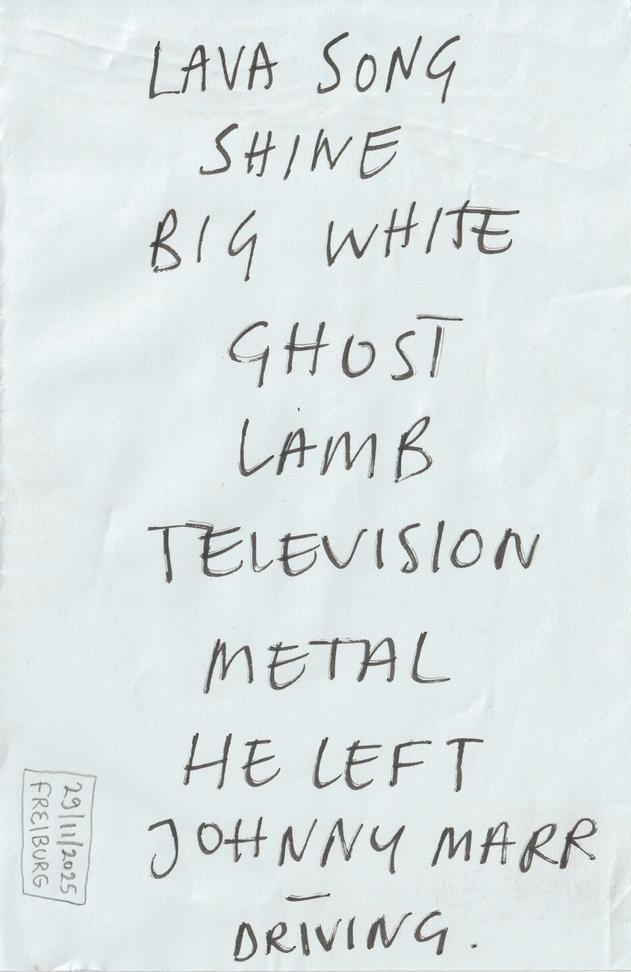 LAVA SONG
SHINE
BIG WHITE
GHOST
LAMB
TELEVISION
METAL
HE LEFT
JOHNNY MARR
—
DRIVING.
29/11/2025
FREIBURG